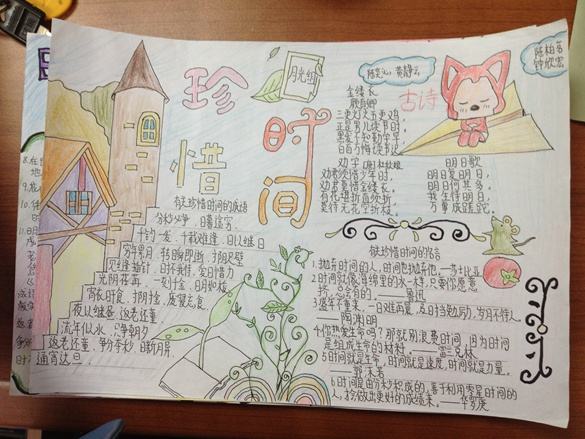 珍惜时间
月光组
陈奕心 黄静云
陈柏芳
钟欣宏
古诗
金缕衣
颜真卿
三更灯火五更鸡，
正是男儿读书时。
黑发不知勤学早，
白首方悔读书迟。
劝学 [唐]杜秋娘
劝君莫惜金缕衣，
劝君惜取少年时。
有花堪折直须折，
莫待无花空折枝。
明日歌
明日复明日，
明日何其多。
我生待明日，
万事成蹉跎。
有关珍惜时间的成语
分秒必争、日暮途穷
千钧一发、千载难逢、日以继日
穷年累月、转瞬即逝、
见缝插针、时不我待、爱日惜力
光阴荏苒、一刻千金、日月如梭
夜以继日、返老还童
流年似水、只争朝夕
返老还童、争分夺秒、
通宵达旦。
有关珍惜时间的名言
1.抛弃时间的人，时间也抛弃他。——莎士比亚
2.时间就像海绵里的水一样，只要你愿意
挤，总会有的。——鲁迅
3.盛年不重来，一日难再晨，及时当勉励，岁月不待人。
——陶渊明
4.你热爱生命吗？那就别浪费时间，因为时间
是组成生命的材料。——富兰克林
5.时间就是生命，时间就是速度，时间就是力量。
——郭沫若
6.时间是由分秒积成的，善于利用零星时间的
人，才会做出更好的成绩来。——华罗庚